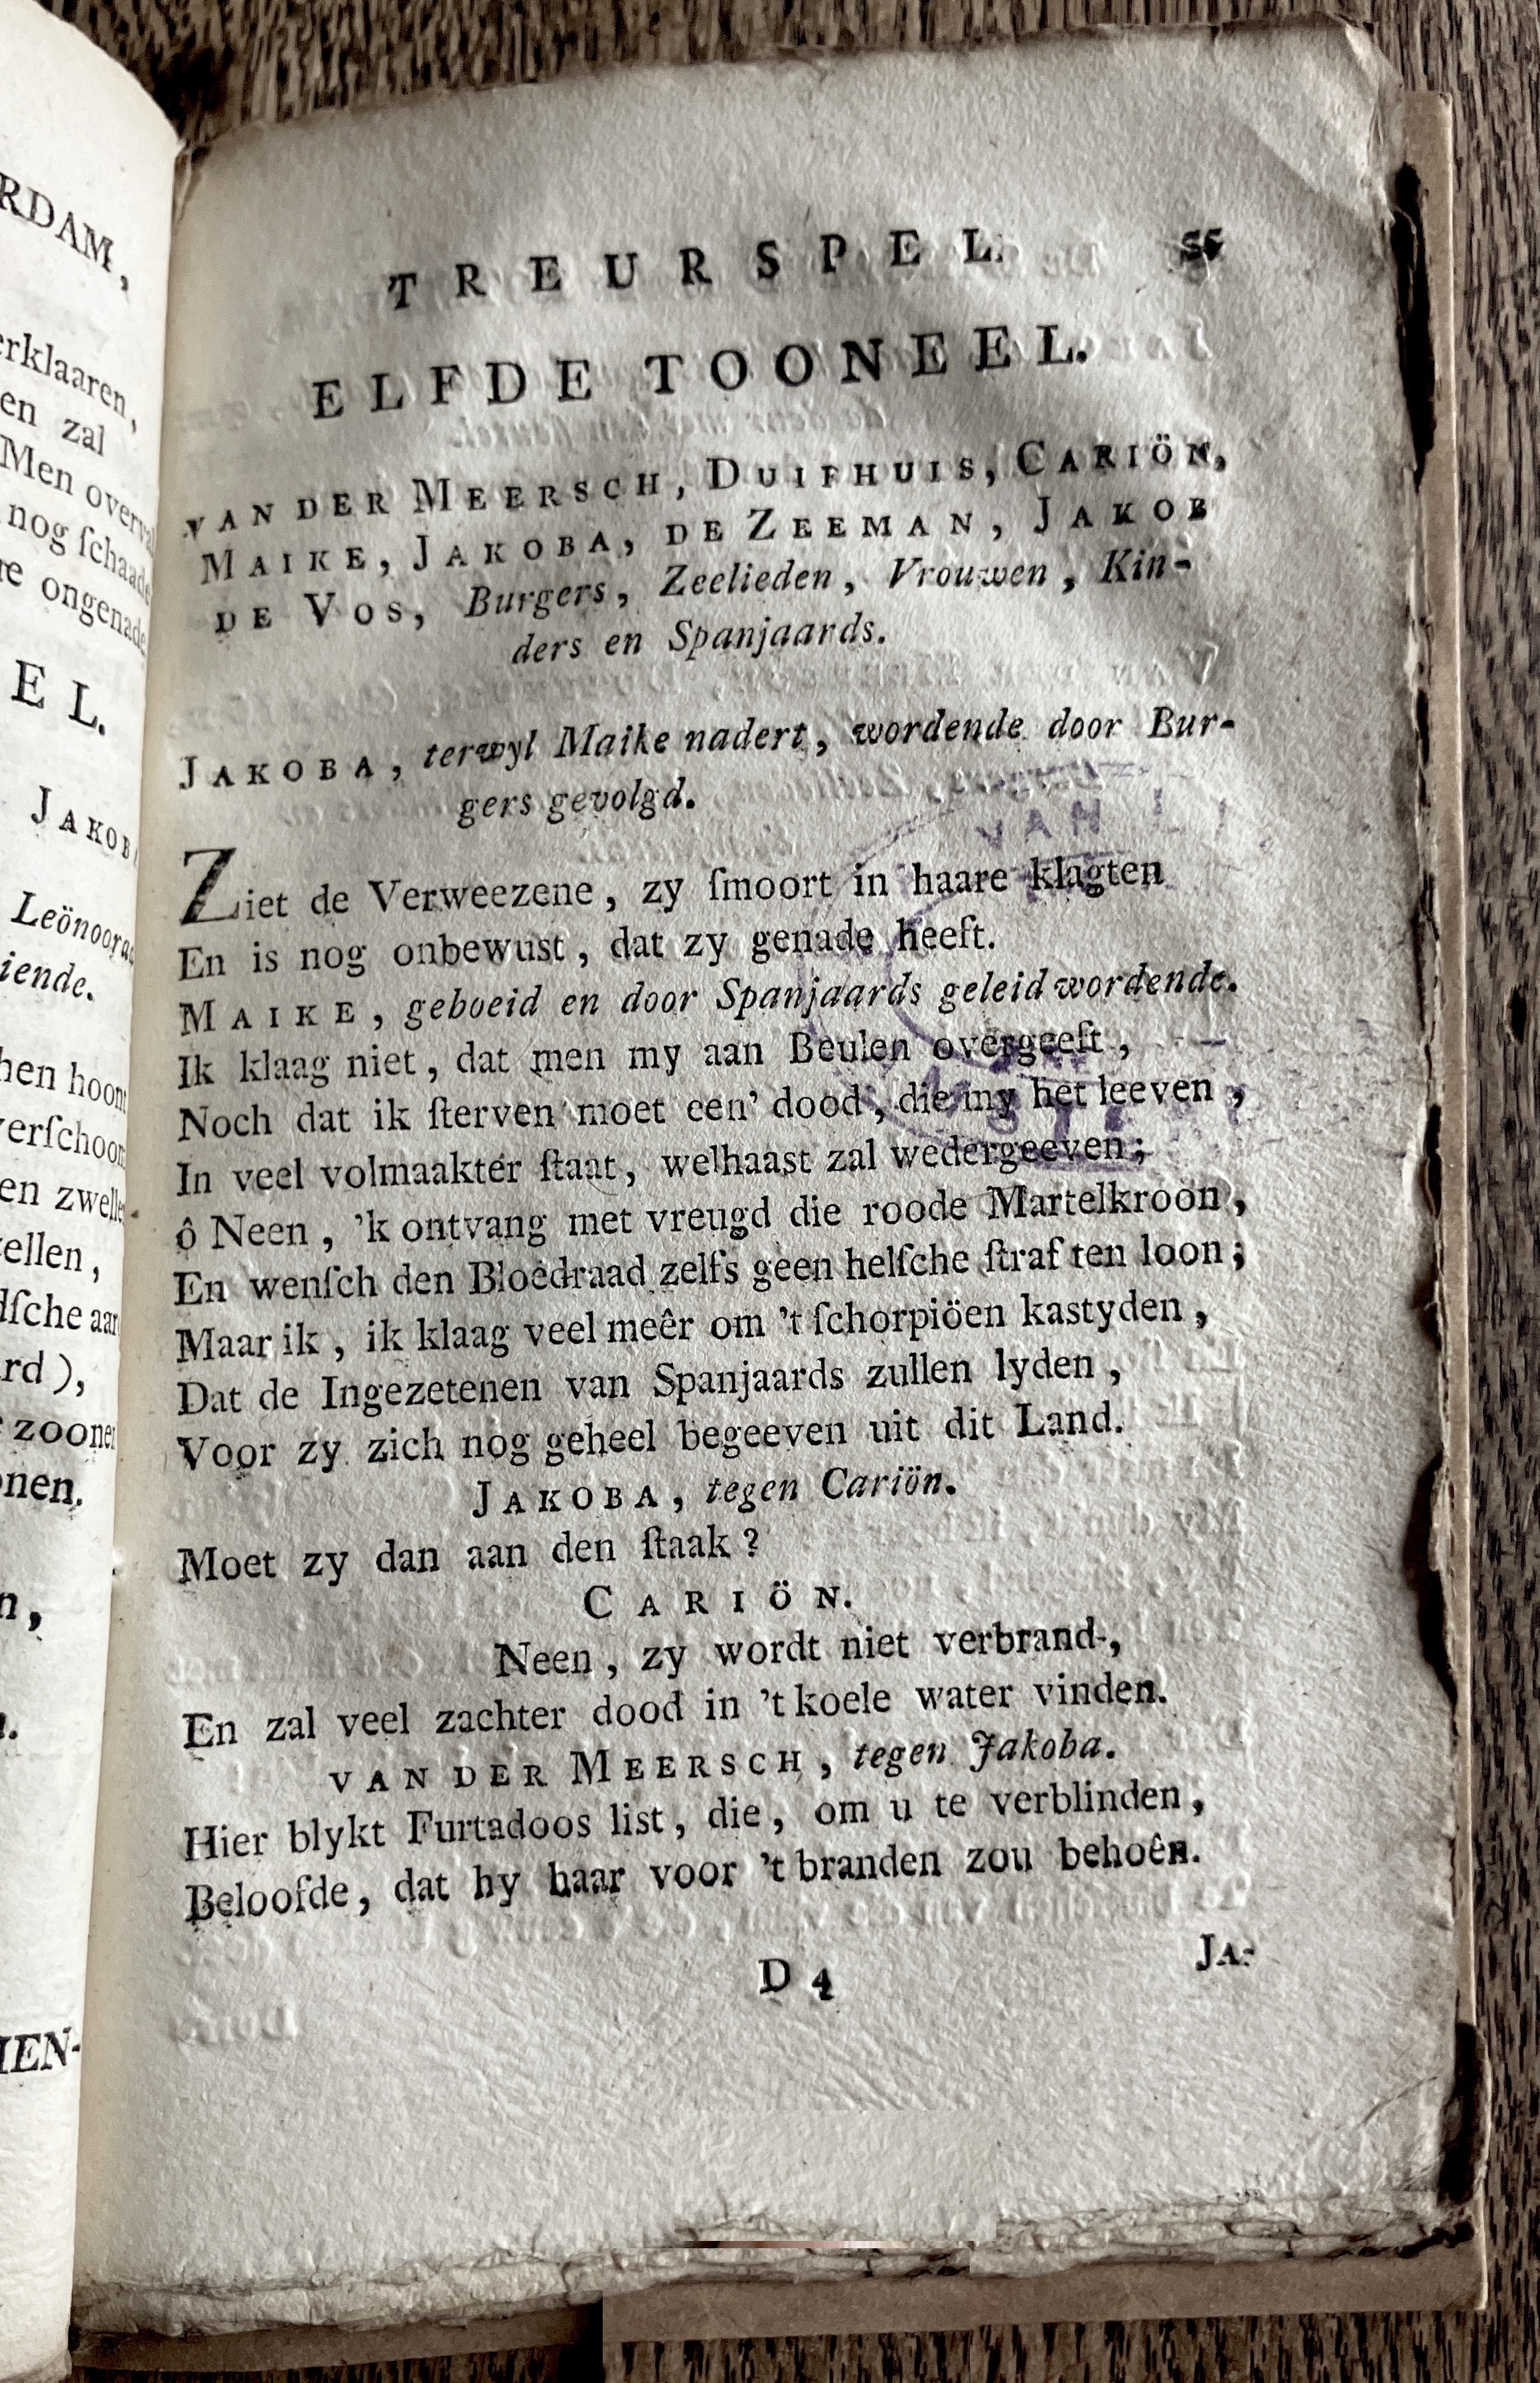 RDAM,
erklaaren,
en zal
Men overva
nog ſchaade
re ongenade
EL.
JAKOB
Leönoora
iende.
hen hoon
verſchoon
en zwelle
ellen,
dſche aan
rd),
zoonen
onen.
n,
IEN-
TREURSPEL. 55
ELFDE TOONEEL.
VAN DER MEERSCH, DUIFHUIS, CARIÖN,
MAIKE, JAKOBA, DE ZEEMAN, JAKOB
DE VOS, Burgers, Zeelieden, Vrouwen, Kin-
ders en Spanjaards.
JAKOBA, terwyl Maike nadert, wordende door Bur-
gers gevolgd.
Ziet de Verweezene, zy ſmoort in haare klagten
En is nog onbewust, dat zy genade heeft.
MAIKE, geboeid en door Spanjaards geleid wordende.
Ik klaag niet, dat men my aan Beulen overgeeft,
Noch dat ik ſterven moet een' dood, die my het leeven,
In veel volmaakter ſtaat, welhaast zal wedergeeven;
ô Neen, 'k ontvang met vreugd die roode Martelkroon,
En wenſch den Bloedraad zelfs geen helſche ſtraf ten loon;
Maar ik, ik klaag veel meêr om 't ſchorpiöen kastyden,
Dat de Ingezetenen van Spanjaards zullen lyden,
Voor zy zich nog geheel begeeven uit dit Land.
JAKOBA, tegen Cariön.
Moet zy dan aan den ſtaak?
CARIÖN.
Neen, zy wordt niet verbrand,
En zal veel zachter dood in 't koele water vinden.
VAN DER MEERSCH, tegen Jakoba.
Hier blykt Furtadoos list, die, om u te verblinden,
Beloofde, dat hy haar voor 't branden zou behoên.
D 4 JA-
VAN